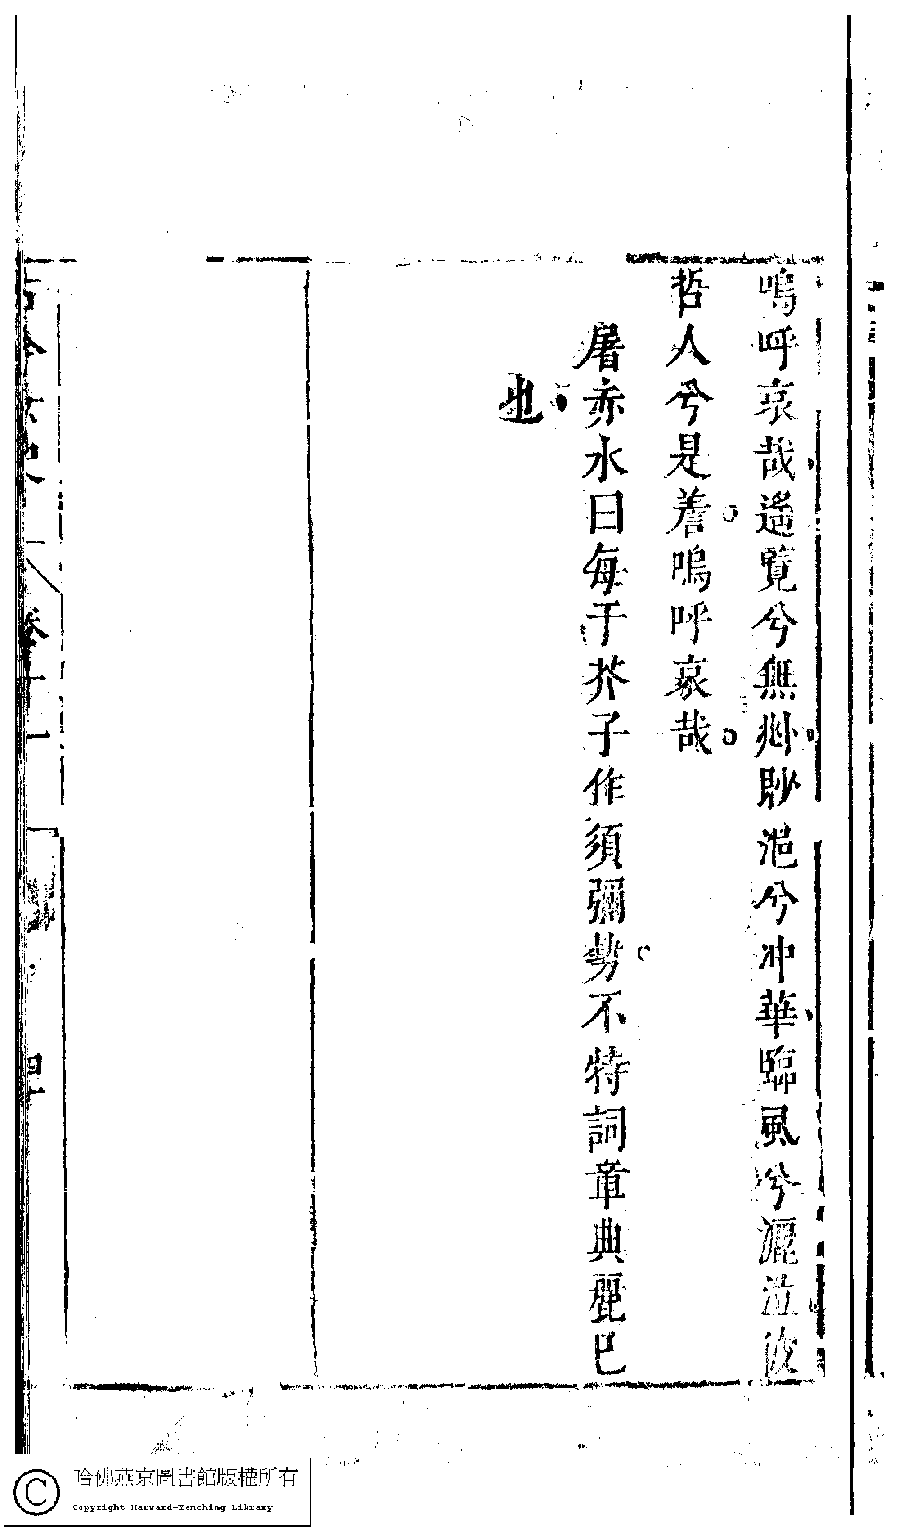 嗚呼哀哉遥覽兮無逃眇浥兮冲華臨風兮灑泣彼
哲人兮是蓍嗚呼哀哉
屠赤水曰每于芥子作須彌勢不特詞章典麗巴
也
卷十一
四十
哈佛燕京圖書館版權所有
Copyright Harvard-Yenching Library